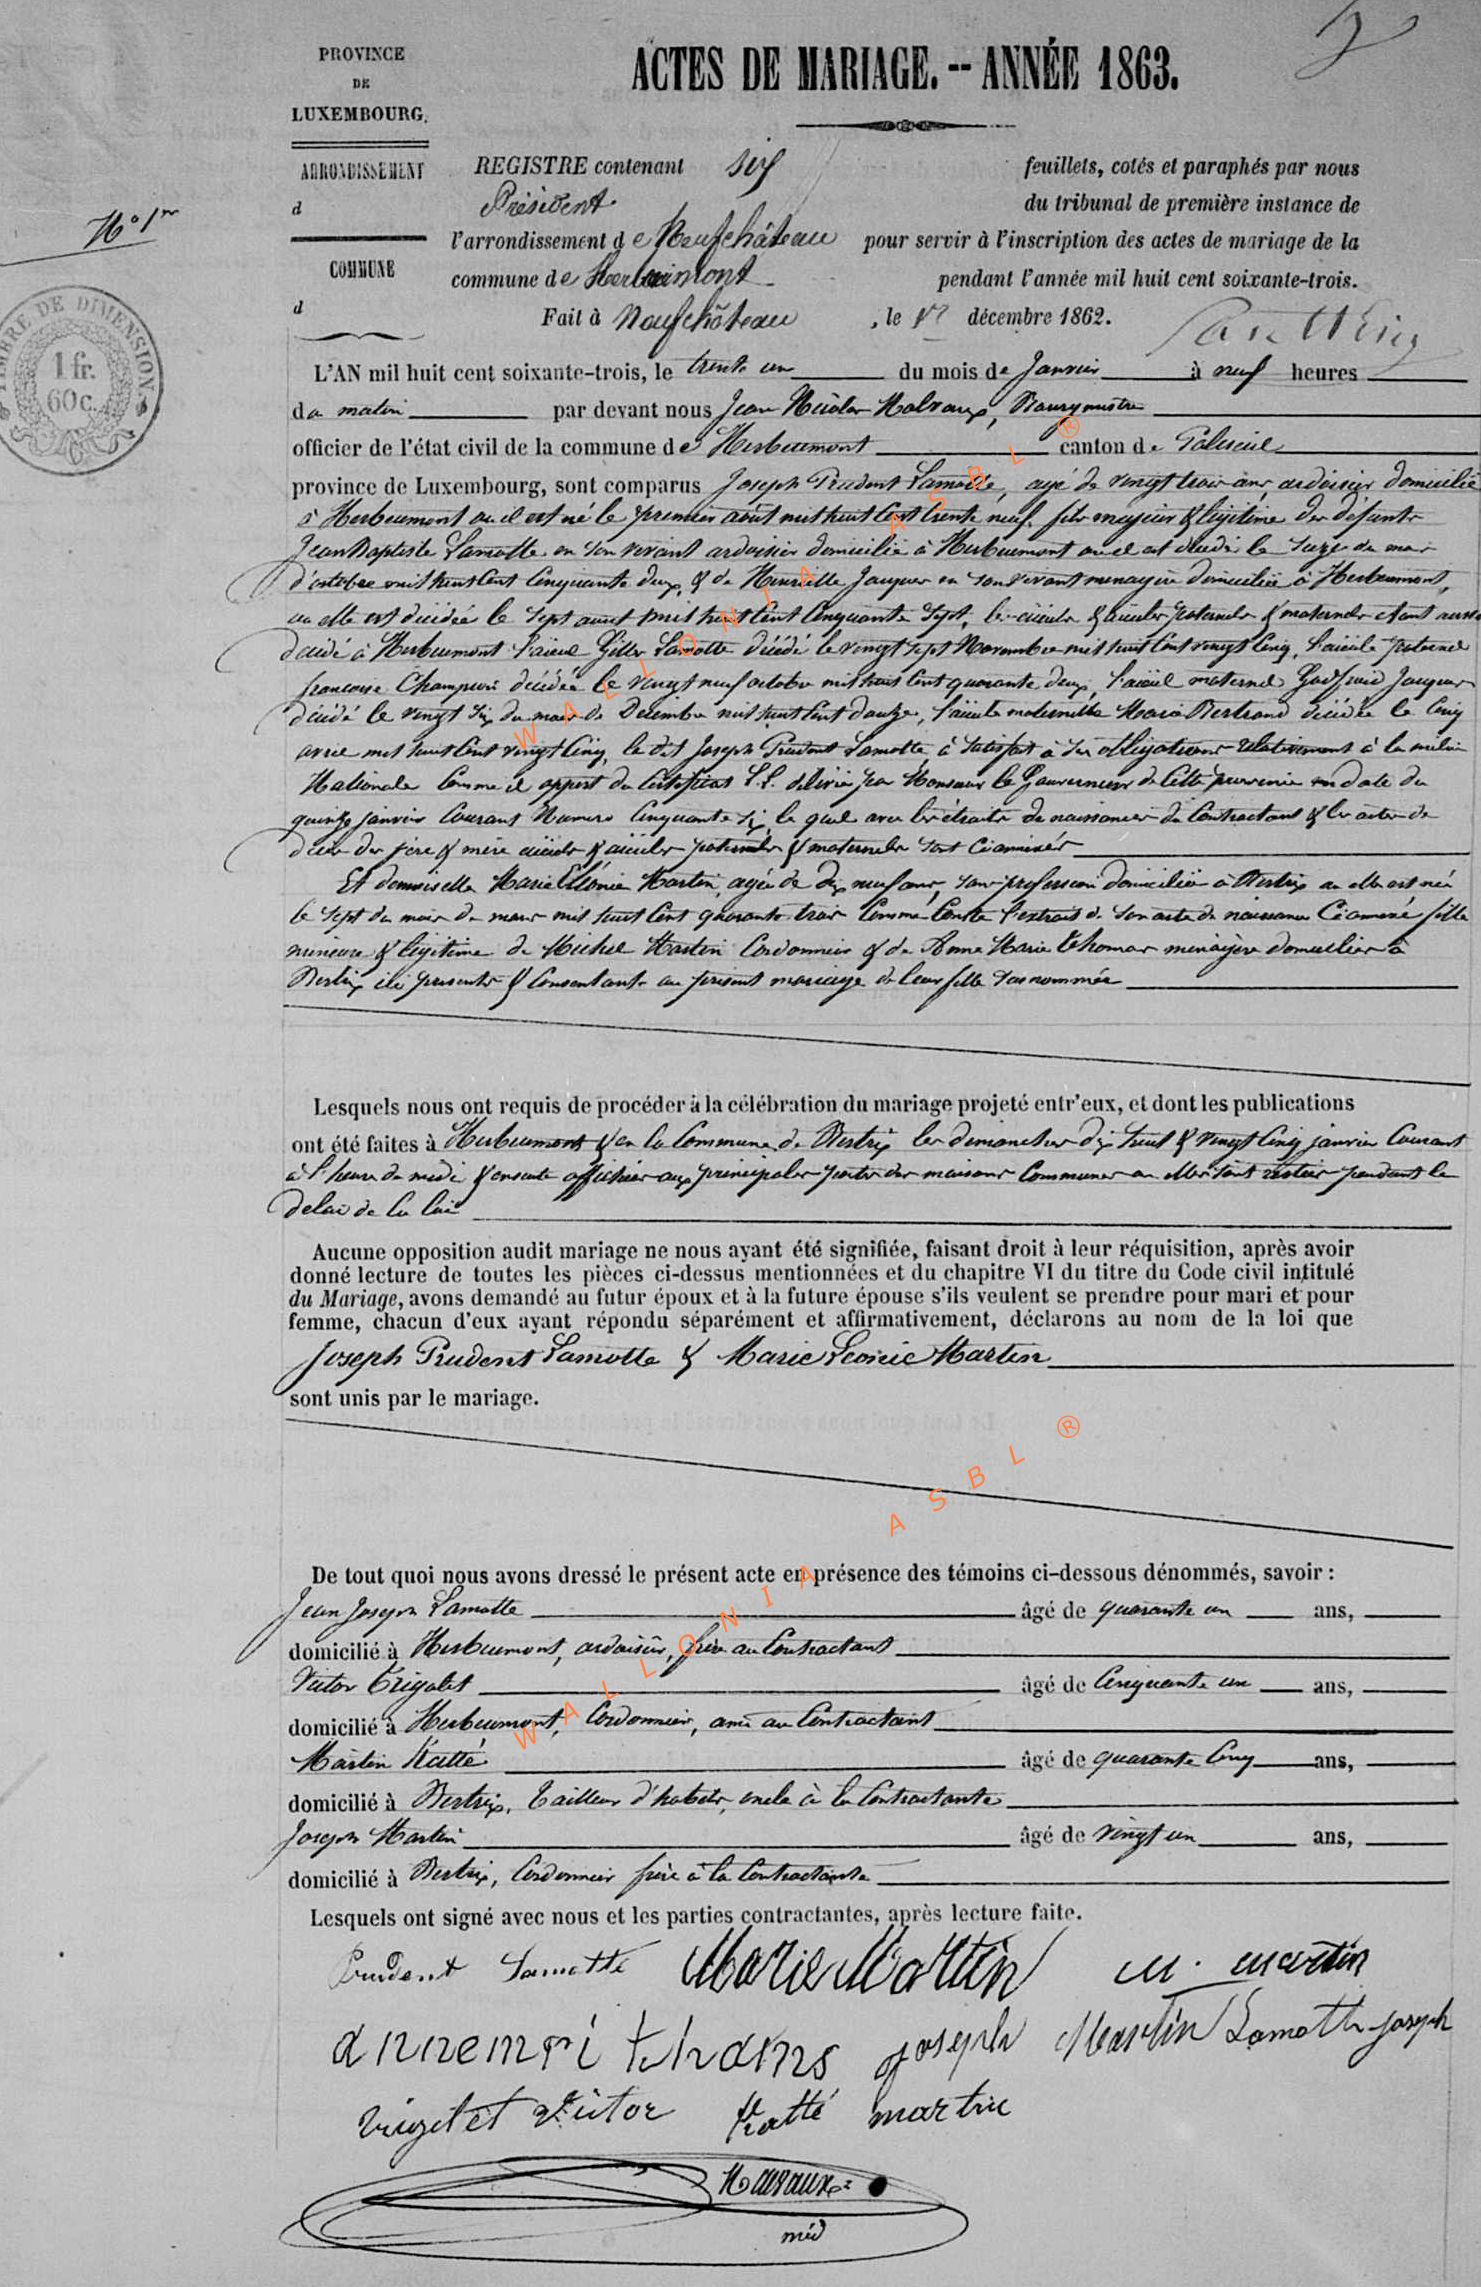 PROVINCE
DE
LUXEMBOURG.
ACTES DE MARIAGE. -- ANNÉE 1863.
ARRONDISSEMENT
d
COMMUNE
d
N° 1er
TIMBRE DE DIMENSION
1 fr.
60 c.
REGISTRE contenant six feuillets, cotés et paraphés par nous
Président du tribunal de première instance de
l'arrondissement de Neufchâteau pour servir à l'inscription des actes de mariage de la
commune de Herbeumont pendant l'année mil huit cent soixante-trois.
Fait à Neufchâteau, le décembre 1862.
L'AN mil huit cent soixante-trois, le trente un du mois de Janvier à neuf heures
du matin par devant nous Jean Nicolas, Bourgmestre
officier de l'état civil de la commune de Herbeumont canton de Paliseul
province de Luxembourg, sont comparus Joseph Prudent Lamotte, agé de vingt trois ans, ardoisier domicilié
à Herbeumont ou il est né le premier août mil huit Cent trente neuf, fils majeur & légitime des défunts
Jean Baptiste Lamotte en son vivant ardoisier domicilié à Herbeumont ou il est décédé le seize du mois
d'octobre mil huit Cent Cinquante deux, & de Henriette Jacques en son vivant menagère domiciliée à Herbeumont,
ou elle est décédée le sept août mil huit Cent Cinquante sept, les aïeuls & aïeules paternels & maternels étant aussi
décédé à Herbeumont l'aïeul Gilles Lamotte décédé le vingt sept Novembre mil huit Cent vingt Cinq, l'aïeule paternel
francoise Champion décédée le vingt neuf octobre mil huit Cent quarante deux, l'aïeul maternel Godfroid Jacques
décédé le vingt six du mois de Décembre mil huit Cent douze, l'aïeule maternelle Marie Bertrand décédée le Cinq
avril mil huit Cent vingt Cinq, le dit Joseph Prudent Lamotte à satisfait à ses obligations relativement à la milice
Nationale Comme il appert du Certificat L.L. délivré par Monsieur le Gouverneur de Cette province en date du
quinze janvier Courant Numero Cinquante six, le quel avec les extraits de naissances du Contractant & les actes de
décès des père & mère aïeuls & aïeules paternels & maternels sont Ciannexés
Et demoiselle Marie Léonie Martin, agée de dix neuf ans, sans profession domiciliée à Bertrix ou elle est née
le sept du mois de mars mil huit Cent quarante trois Comme Conste l'extrait de son acte de naissance Ciannexé fille
mineure & légitime de Michel Martin Cordonnier & de Anne Marie Thomas menagère domiciliés à
Bertrix ici presents & Consentants au présent mariage de leur fille susnommée
Lesquels nous ont requis de procéder à la célébration du mariage projeté entr'eux, et dont les publications
ont été faites à Herbeumont & en la Commune de Bertrix les dimanches dix huit & vingt Cinq janvier Courant
à l'heure de midi & ensuite affichées aux principales portes des maisons Communes ou elles sont restées pendant le
delai de la loi
Aucune opposition audit mariage ne nous ayant été signifiée, faisant droit à leur réquisition, après avoir
donné lecture de toutes les pièces ci-dessus mentionnées et du chapitre VI du titre du Code civil intitulé
du Mariage, avons demandé au futur époux et à la future épouse s'ils veulent se prendre pour mari et pour
femme, chacun d'eux ayant répondu séparément et affirmativement, déclarons au nom de la loi que
Joseph Prudent Lamotte & Marie Leonie Martin
sont unis par le mariage.
De tout quoi nous avons dressé le présent acte en présence des témoins ci-dessous dénommés, savoir :
Jean Joseph Lamotte âgé de quarante un ans,
domicilié à Herbeumont, ardoisier, frère au Contractant
Victor Trigalet âgé de Cinquante un ans,
domicilié à Herbeumont, Cordonnier, ami au Contractant
Martin Katté âgé de quarante Cinq ans,
domicilié à Bertrix, tailleur d'habits, oncle à la Contractante
Joseph Martin âgé de vingt un ans,
domicilié à Bertrix, Cordonnier frère à la Contractante
Lesquels ont signé avec nous et les parties contractantes, après lecture faite.
Prudent Lamotte Marie Martin M. Martin
joseph Martin Lamotte joseph
Victor Katté martin
WALLONIA ASBL ®
WALLONIA ASBL ®